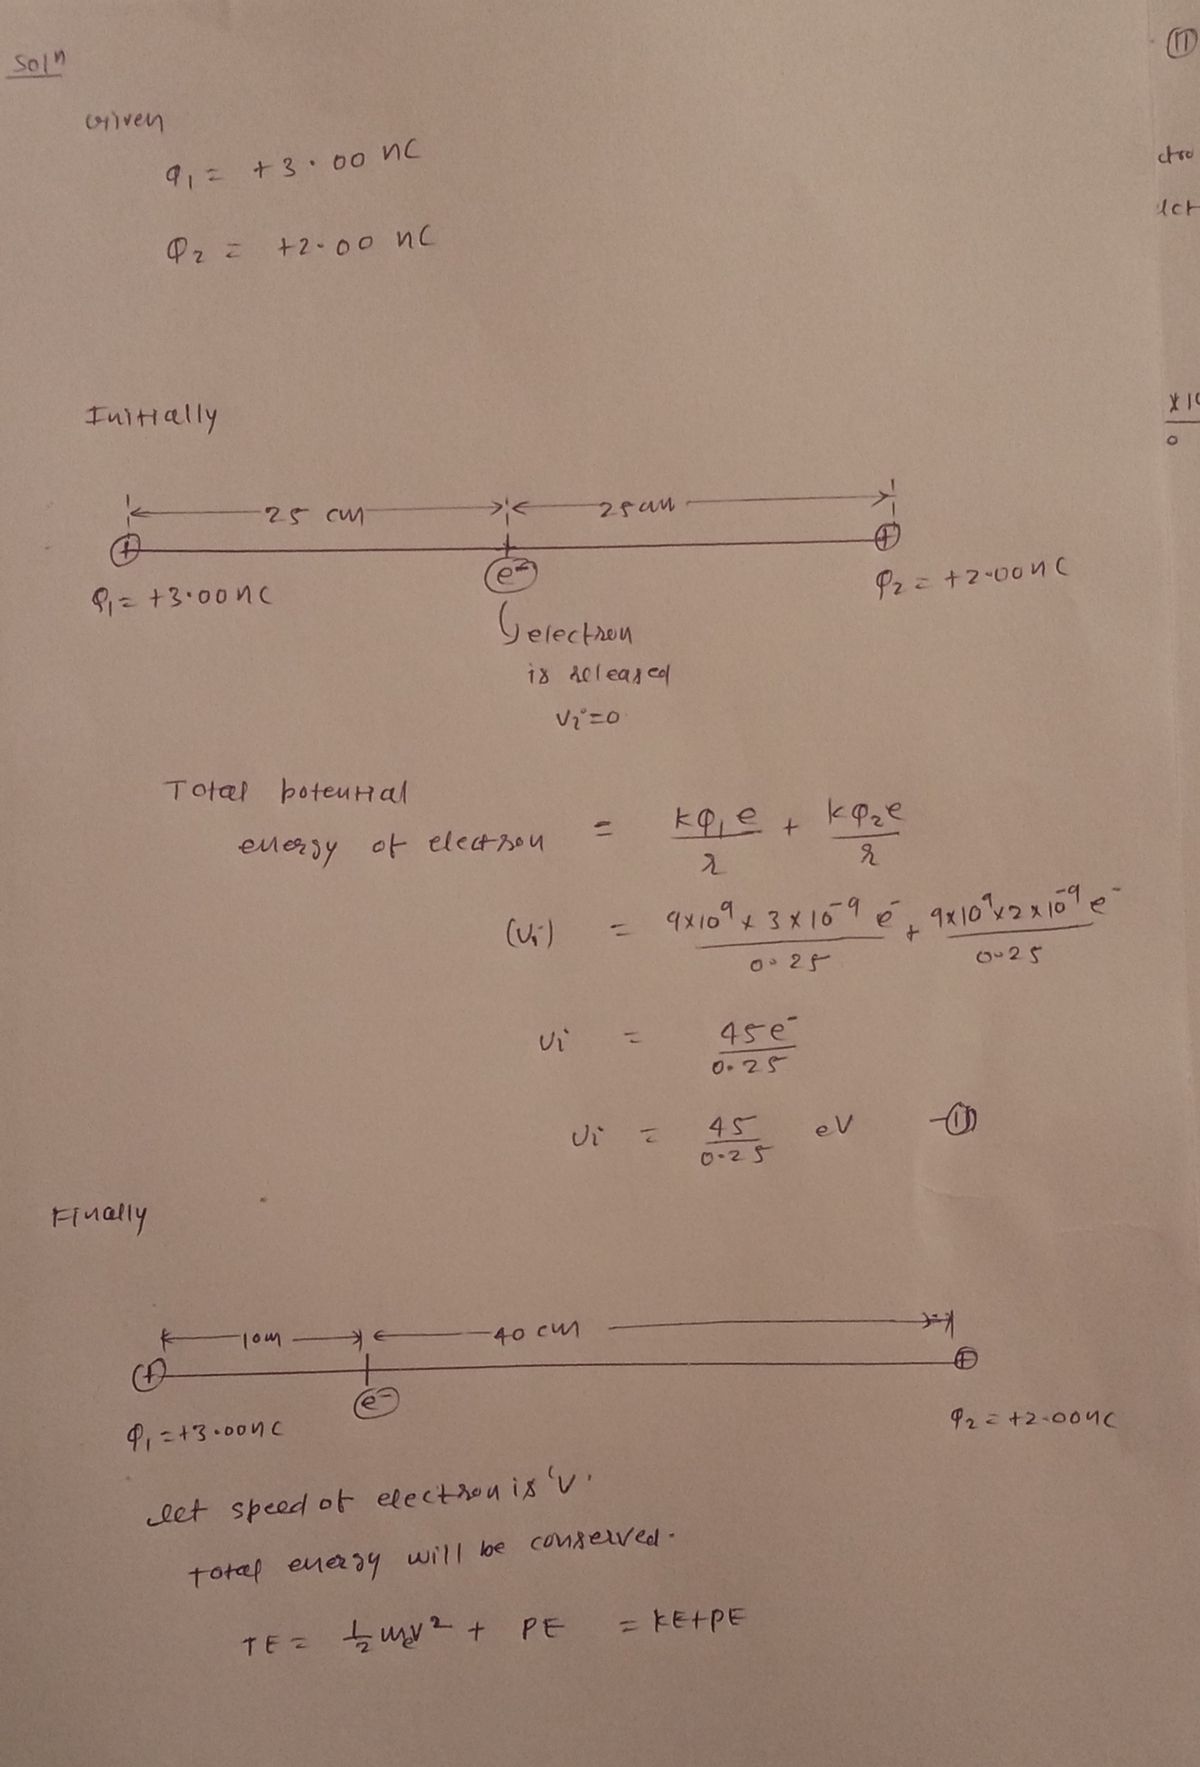 Solⁿ
(11)
Given
φ₁ = +3.00 nC
φ₂ = +2.00 nC
Initially
25 cm 25 cm
+ e⁻ +
φ₁ = +3.00 nC φ₂ = +2.00 nC
electron
is released
vi = 0
Total potential
energy of electron = kφ₁e/r + kφ₂e/r
(Ui) = 9×10⁹ × 3×10⁻⁹ e⁻/0.25 + 9×10⁹×2×10⁻⁹ e⁻/0.25
Ui = 45e⁻/0.25
Ui = 45/0.25 eV —(1)
Finally
10cm 40 cm
+ e⁻ +
φ₁ = +3.00nC φ₂ = +2.00nC
let speed of electron is 'v'.
total energy will be conserved.
TE = ½ mₑv² + PE = KE+PE